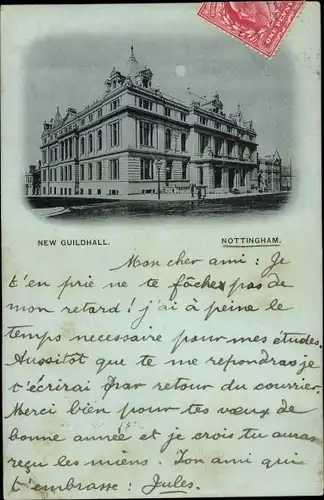 NEW GUILDHALL.
NOTTINGHAM.
Mon cher ami : Je
t'en prie ne te fâches pas de
mon retard ! j'ai à peine le
temps necessaire pour mes études.
Aussitot que tu me repondras je
t'écrirai par retour du courrier.
Merci bien pour tes vœux de
bonne année et je crois tu auras
reçu les miens. Ton ami qui
t'embrasse : Jules.